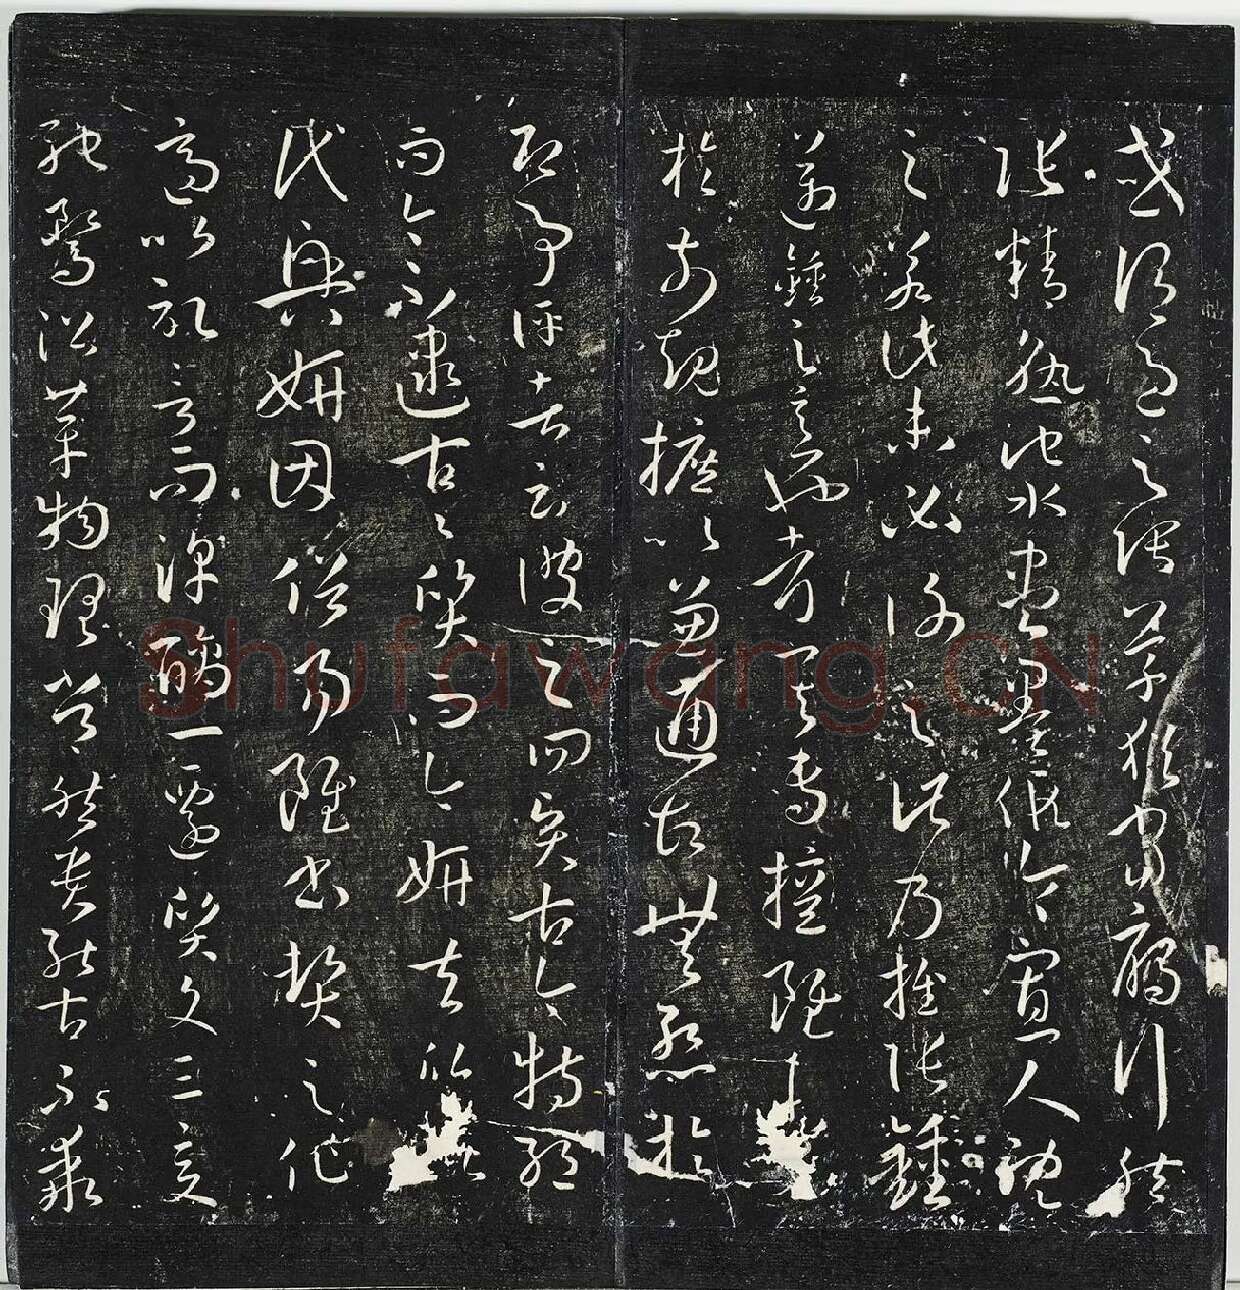 或謂過之張草猶當雁行然
張精熟池水盡墨假令寡人耽
之若此未必謝之此乃推張鍾
邁鍾之意也考其專擅雖
於前規摭以兼通故無慚於
即事評者云彼之四賢古今特絕
而今不逮古〻質而今妍夫質
代興妍因俗易雖書契之作
適以記言而淳醨一遷質文三變
馳騖沿革物理常然貴能古不乖
Shufawang.CN